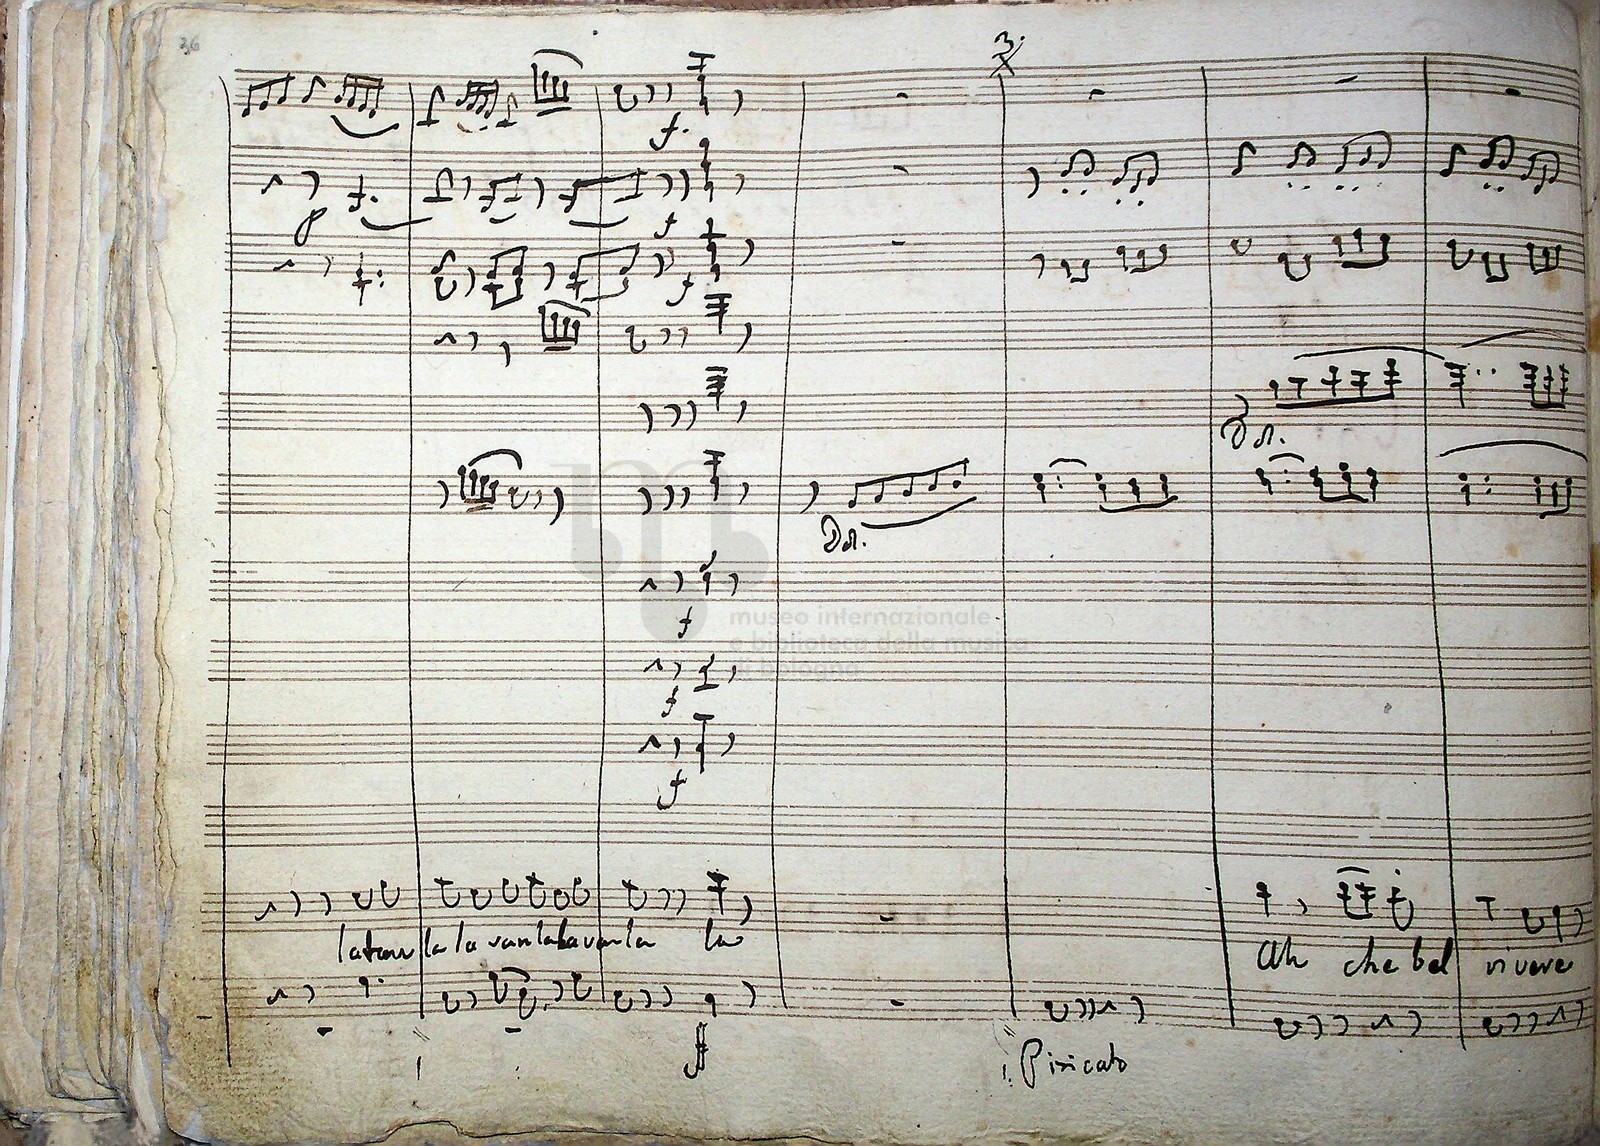 36
3.
f.
p
f
f
Dol.
Dol.
f
museo internazionale
e biblioteca della musica
di bologna
f
f
la la la ran la la ran la la
Ah che bel vivere
ff
Pizicato